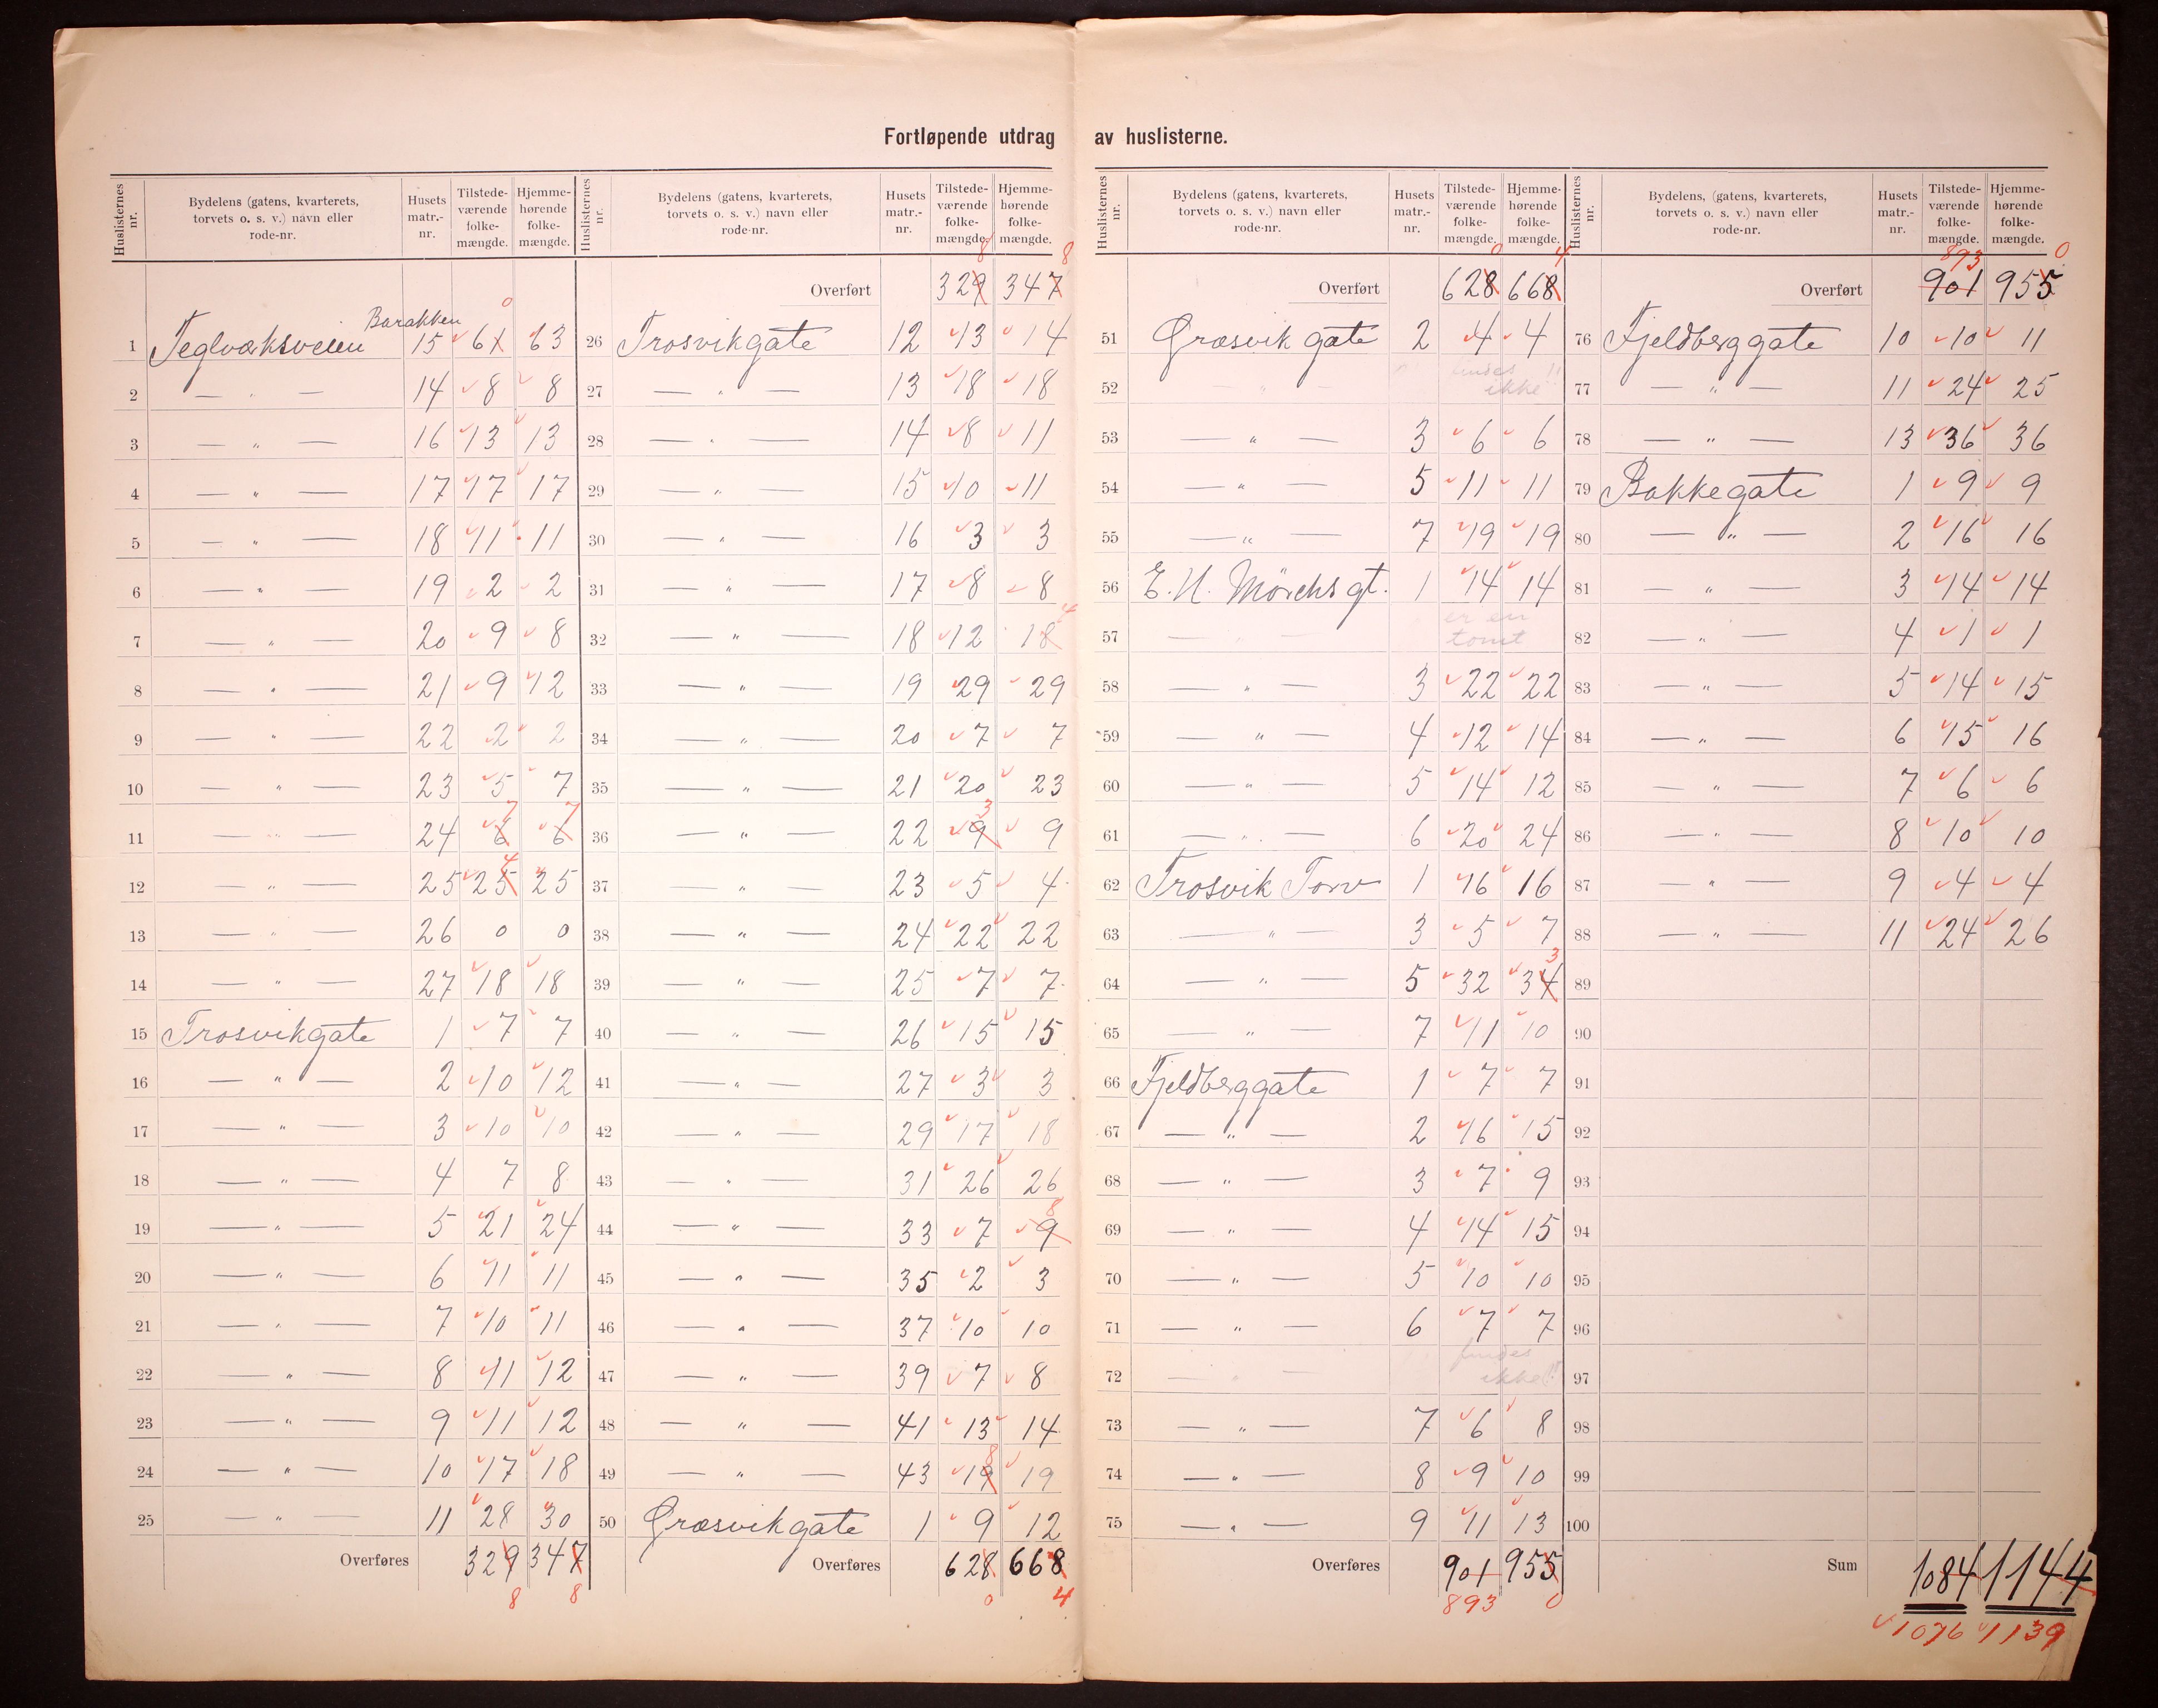 Fortløpende utdrag av huslisterne.
Huslisternes nr. | Bydelens (gatens, kvarterets, torvets o. s. v.) navn eller rode-nr. | Husets matr.-nr. | Tilstede-værende folke-mængde. | Hjemme-hørende folke-mængde.
Barakken
1 Teglværksveien 15 61 0 63
2 — " — 14 8 8
3 — " — 16 13 13
4 — " — 17 17 17
5 — " — 18 11 11
6 — " — 19 2 2
7 — " — 20 9 8
8 — " — 21 9 12
9 — " — 22 2 2
10 — " — 23 5 7
11 — " — 24 6 7 6 7
12 — " — 25 25 4 25
13 — " — 26 0 0
14 — " — 27 18 18
15 Trosvikgate 1 7 7
16 — " — 2 10 12
17 — " — 3 10 10
18 — " — 4 7 8
19 — " — 5 21 24
20 — " — 6 11 11
21 — " — 7 10 11
22 — " — 8 11 12
23 — " — 9 11 12
24 — " — 10 17 18
25 — " — 11 28 30
Overføres 329 347
8 8
Huslisternes nr. | Bydelens (gatens, kvarterets, torvets o. s. v.) navn eller rode-nr. | Husets matr.-nr. | Tilstede-værende folke-mængde. | Hjemme-hørende folke-mængde.
8 8
Overført 329 347
26 Trosvikgate 12 13 14
27 — " — 13 18 18
28 — " — 14 8 11
29 — " — 15 10 11
30 — " — 16 3 3
31 — " — 17 8 8
32 — " — 18 12 18 4
33 — " — 19 29 29
34 — " — 20 7 7
35 — " — 21 20 23
36 — " — 22 9 3 9
37 — " — 23 5 4
38 — " — 24 22 22
39 — " — 25 7 7
40 — " — 26 15 15
41 — " — 27 3 3
42 — " — 29 17 18
43 — " — 31 26 26
44 — " — 33 7 9 8
45 — " — 35 2 3
46 — " — 37 10 10
47 — " — 39 7 8
48 — " — 41 13 14
49 — " — 43 19 8 19
50 Græsvikgate 1 9 12
Overføres 628 668
0 4
Huslisternes nr. | Bydelens (gatens, kvarterets, torvets o. s. v.) navn eller rode-nr. | Husets matr.-nr. | Tilstede-værende folke-mængde. | Hjemme-hørende folke-mængde.
0 4
Overført 628 668
51 Græsvik gate 2 4 4
52 — " — findes ikke !!
53 — " — 3 6 6
54 — " — 5 11 11
55 — " — 7 19 19
56 E. H. Mörchs gt. 1 14 14
57 — " — er en tomt
58 — " — 3 22 22
59 — " — 4 12 14
60 — " — 5 14 12
61 — " — 6 20 24
62 Trosvik Torv 1 16 16
63 — " — 3 5 7
64 — " — 5 32 34 3
65 — " — 7 11 10
66 Fjeldberggate 1 7 7
67 — " — 2 16 15
68 — " — 3 7 9
69 — " — 4 14 15
70 — " — 5 10 10
71 — " — 6 7 7
72 — " — findes ikke!!
73 — " — 7 6 8
74 — " — 8 9 10
75 — " — 9 11 13
Overføres 901 955
893 0
Huslisternes nr. | Bydelens (gatens, kvarterets, torvets o. s. v.) navn eller rode-nr. | Husets matr.-nr. | Tilstede-værende folke-mængde. | Hjemme-hørende folke-mængde.
893 0
Overført 901 955
76 Fjeldberggate 10 10 11
77 — " — 11 24 25
78 — " — 13 36 36
79 Bakkegate 1 9 9
80 — " — 2 16 16
81 — " — 3 14 14
82 — " — 4 1 1
83 — " — 5 14 15
84 — " — 6 15 16
85 — " — 7 6 6
86 — " — 8 10 10
87 — " — 9 4 4
88 — " — 11 24 26
89
90
91
92
93
94
95
96
97
98
99
100
Sum 1084 1144
1076 1139